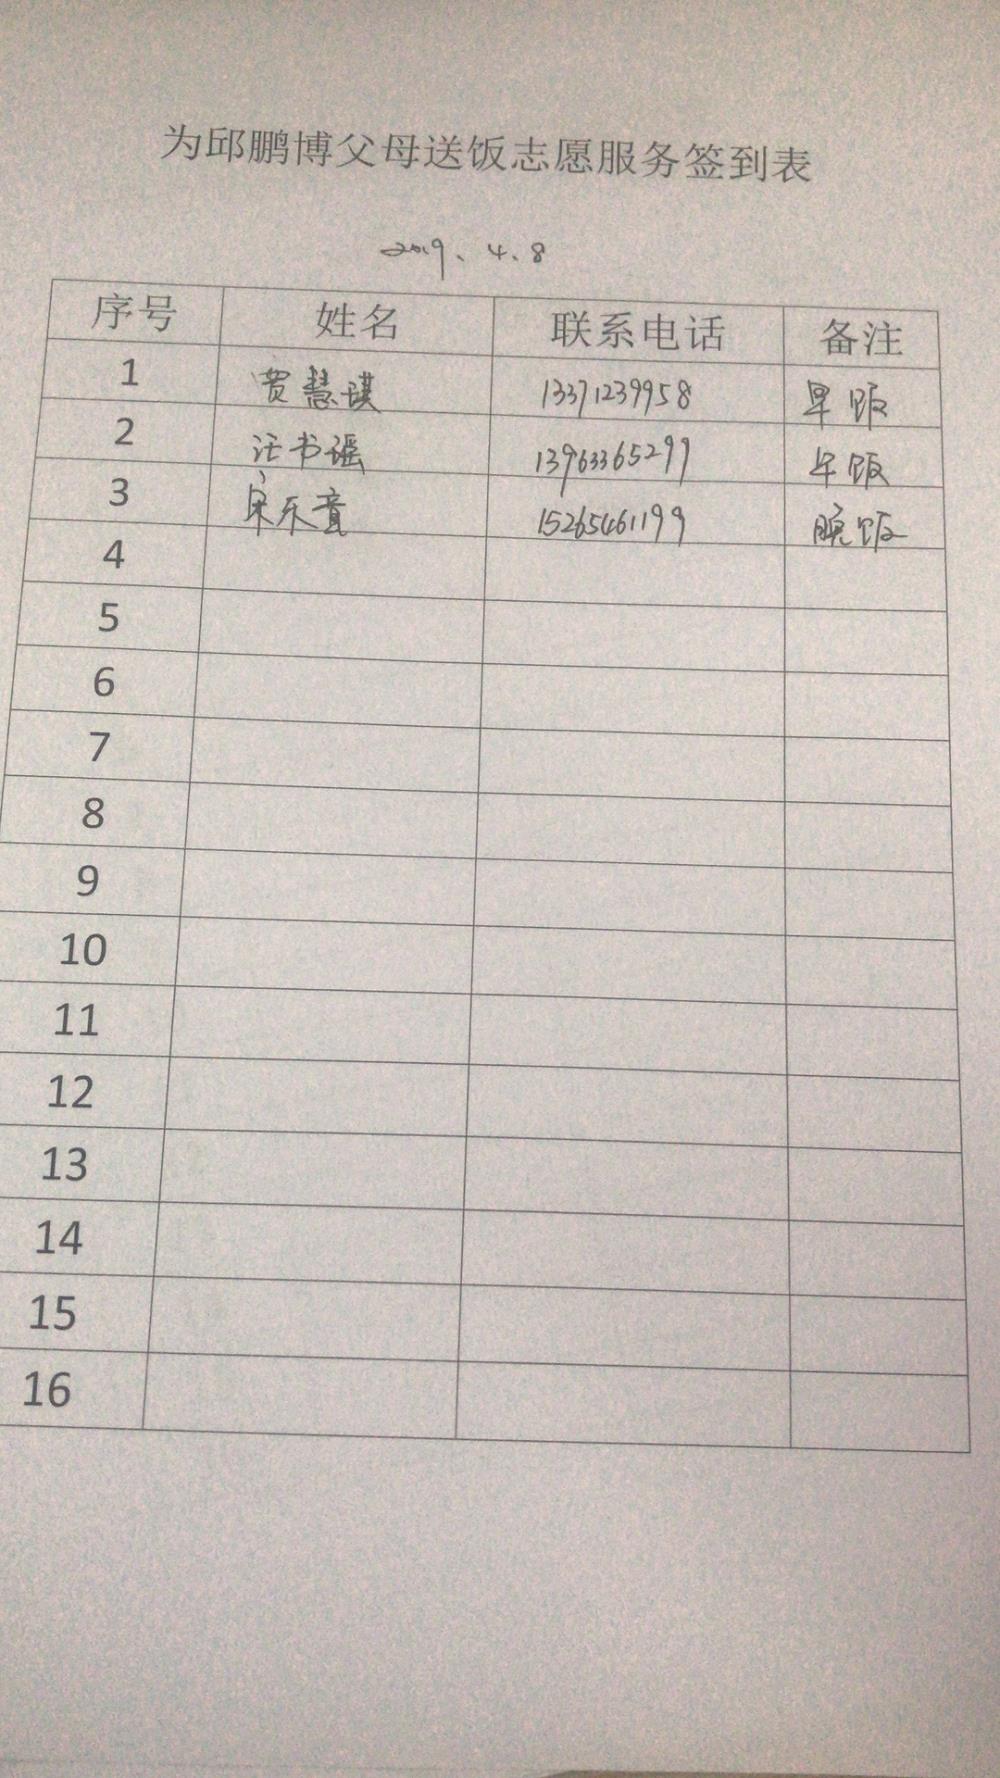 为邱鹏博父母送饭志愿服务签到表
2019、4、8
序号 姓名 联系电话 备注
1 贾慧琪 13371239958 早饭
2 汪书瑶 13963365299 午饭
3 宋乐童 15265461199 晚饭
4
5
6
7
8
9
10
11
12
13
14
15
16